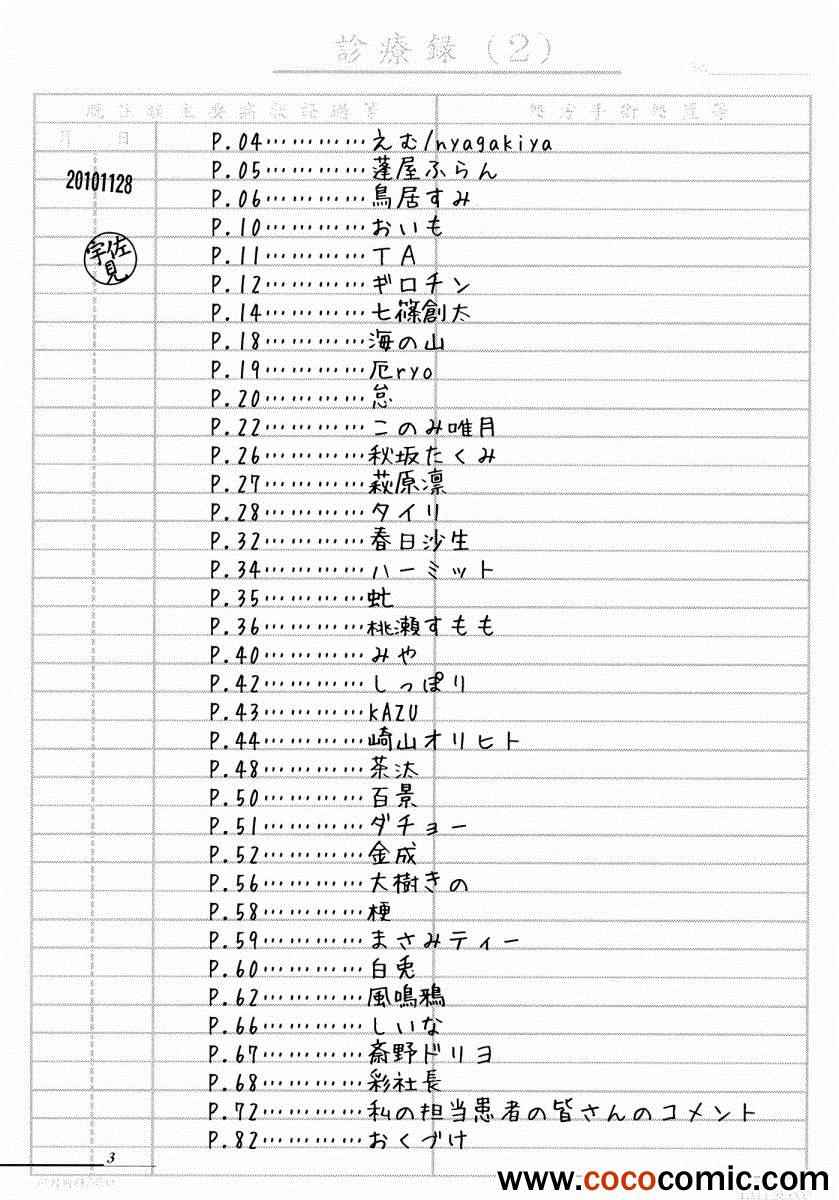 診療録（2）
No.
月 日
20101128
宇佐見
P.04…………えむ/nyagakiya
P.05…………蓬屋ふらん
P.06…………鳥居すみ
P.10…………おいも
P.11…………TA
P.12…………ギロチン
P.14…………七篠創太
P.18…………海の山
P.19…………厄ryo
P.20…………怠
P.22…………このみ唯月
P.26…………秋坂たくみ
P.27…………萩原凛
P.28…………タイリ
P.32…………春日沙生
P.34…………ハーミット
P.35…………虻
P.36…………桃瀬すもも
P.40…………みや
P.42…………しっぽり
P.43…………KAZU
P.44…………崎山オリヒト
P.48…………茶汰
P.50…………百景
P.51…………ダチョー
P.52…………金成
P.56…………大樹きの
P.58…………梗
P.59…………まさみティー
P.60…………白兎
P.62…………風鳴鴉
P.66…………しいな
P.67…………斎野ドリヨ
P.68…………彩社長
P.72…………私の担当患者の皆さんのコメント
P.82…………おくづけ
3
www.cococomic.com